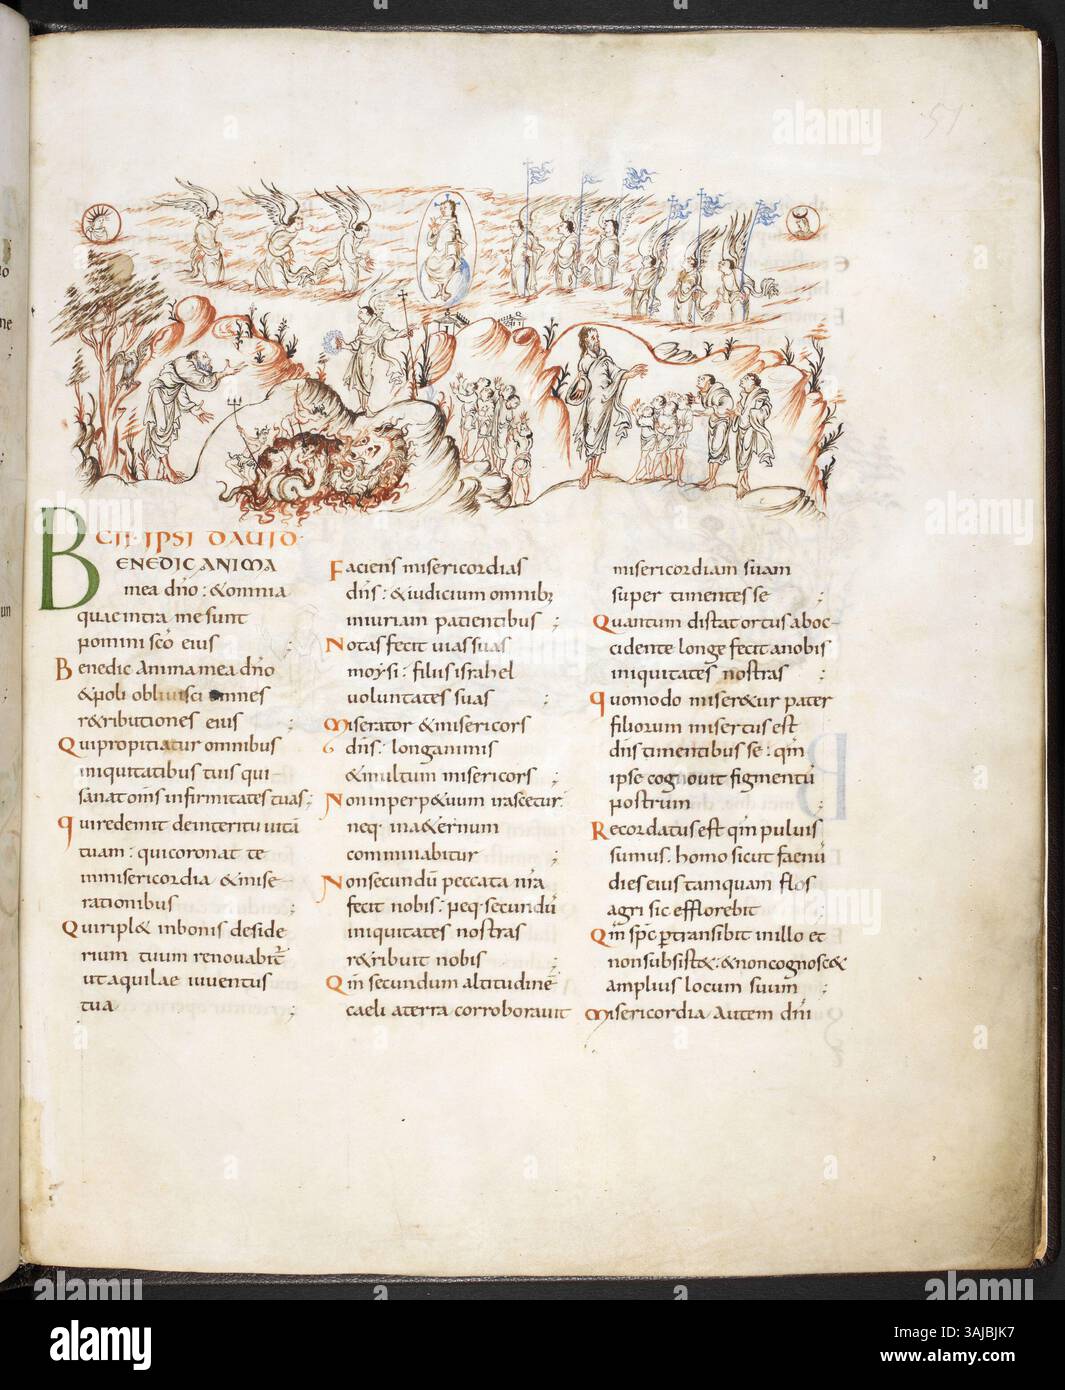 51
CII · IPSI DAVID ·
BENEDIC ANIMA
mea dño : & omnia
quae intra me sunt
nomini sc̄o eius ;
Benedic anima mea dño
& noli oblivisci omnes
retributiones eius ;
Qui propitiatur omnibus
iniquitatibus tuis qui
sanat om̄s infirmitates tuas ;
Qui redemit de interitu uitā
tuam : qui coronat te
in misericordia & mise-
rationibus ;
Qui replet in bonis deside
rium tuum renovabit̄
ut aquilae iuventus
tua ;
Faciens misericordias
dn̄s : & iudicium omnib;
iniuriam patientibus ;
Notas fecit uias suas
moysi : filiis israhel
voluntates suas ;
Miserator & misericors
dn̄s : longanimis
& multum misericors ;
Non in perp&uum irascetur
neq; in a&ernum
comminabitur ;
Non secundū peccata nr̄a
fecit nobis : neq; secundū
iniquitates nostras
r&ribuit nobis ;
Qm̄ secundum altitudinē
caeli a terra corroboravit
misericordiam suam
super timentes se ;
Quantum distat ortus ab oc-
cidente longe fecit a nobis
iniquitates nostras ;
Quomodo miser&ur pater
filiorum misertus est
dn̄s timentibus se : qm̄
ipse cognovit figmentū
nostrum ;
Recordatus est qm̄ puluis
sumus . homo sicut faenū
dies eius tamquam flos
agri sic efflorebit ;
Qm̄ sp̄c pertransibit in illo et
non subsist& : & non cognosc&
amplius locum suum ;
Misericordia autem dn̄i
alamy
Image ID: 3AJBJK7
www.alamy.com